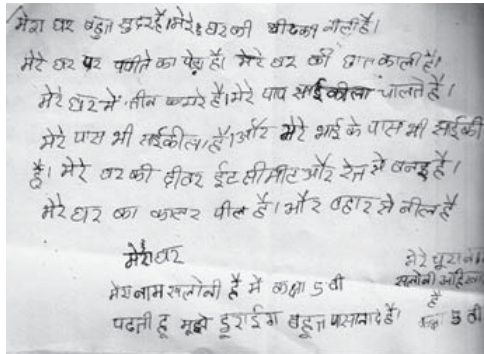 मेरा घर बहुत सुदर है। मेरे घर की खीटकी नीली है।
मेरे घर पर पपीते का पेड़ है। मेरे घर की छात काली है।
मेरे घर में तीन कमरे है। मेरे पाप साईकीला चालते है।
मेरे पास भी साईकील है। और मेरे भाई के पास भी साईकी
है। मेरे घर की दीवर ईट सीमीट और रेज से बनइ है।
मेरे घार का कालर पील है। और बहार से नील है
मेरा घर
मेरा नाम सलोनी है में कक्षा 5 वी
पढती हू मूझे डूराईग बहूत पासनादे है।
मेरे पूरा नाम
सलोनी
है
कक्षा 5 वी